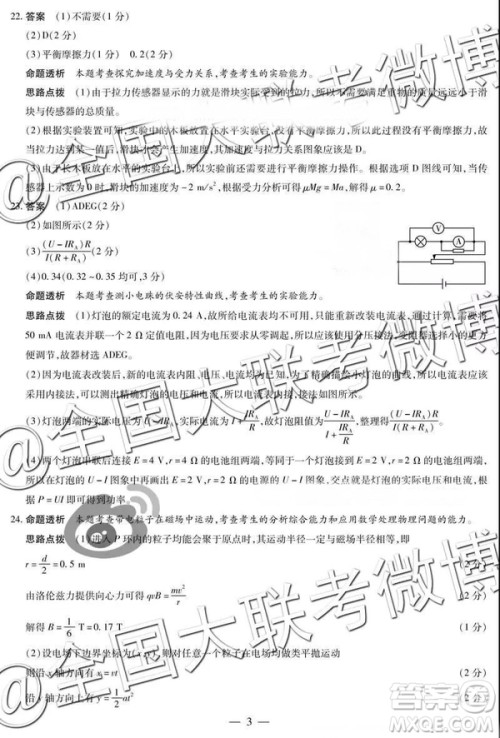 22. 答案 (1)不需要(1分)
(2)D(2分)
(3)平衡摩擦力(1分) 0.2(2分)
命题透析 本题考查探究加速度与受力关系,考查考生的实验能力。
思路点拨 (1)由于拉力传感器显示的力就是滑块实际受到的拉力,所以不需要满足重物的质量远远小于滑
块与传感器的总质量。
(2)根据实验装置可知,实验中的木板放置在水平实验台,没有平衡摩擦力,所以此过程没有平衡摩擦力,故
当拉力达到某一值后,滑块才会产生加速度,其加速度与拉力关系图象应该是D。
(3)由于长木板放在水平的实验台上,所以实验前还需要进行平衡摩擦力操作。根据选项D图线可知,当传
感器上示数为0时,滑块的加速度为-2 m/s²,根据受力分析可得μMg=Ma,解得μ=0.2。
23. 答案 (1)ADEG(2分)
(2)如图所示(2分)
(3)(U-IR_A)R/I(R+R_A)(2分)
(4)0.34(0.32~0.35均可,3分)
命题透析 本题考查测小电珠的伏安特性曲线,考查考生的实验能力。
思路点拨 (1)灯泡的额定电流为0.24 A,故给出的电流表均不可用,只能重新改装电流表,通过计算,需要将
50 mA电流表并联一个2 Ω定值电阻,因为电压要求从零调起,所以应该使用分压接法,变阻器选择小的更方
便调节,故器材选ADEG。
(2)因为电流表改装后,新的电流表内阻、电压、电流均为已知,为了精确描绘小灯泡的曲线,所以电流表应该
采用内接法,可以测出精确灯泡的电压和电流,所以使用电流表内接,接法如图所示。
(3)灯泡两端的实际电压为U-IR_A,实际电流为I+IR_A/R,故灯泡阻值为(U-IR_A)/(I+IR_A/R),整理得(U-IR_A)R/I(R+R_A)。
(4)两个灯泡串联后连接E=4 V,r=4 Ω的电池组两端,等同于一个灯泡连接E=2 V,r=2 Ω的电池组两端,
所以在灯泡的U-I图象中再画出E=2 V,r=2 Ω的电源的U-I图象,交点就是灯泡的实际电压和电流,根
据P=UI即可得到功率。
24. 命题透析 本题考查带电粒子在磁场中运动,考查考生的分析综合能力和应用数学处理物理问题的能力。
思路点拨 (1)进入P环内的粒子均能会聚于原点时,其运动半径一定与磁场半径相等,即
r=d/2=0.5 m (2分)
由洛伦兹力提供向心力可得qvB=mv²/r (2分)
解得B=1/6 T=0.17 T (1分)
(2)设电场下边界坐标为(x,y),则对任意一个粒子在电场均做类平抛运动
则沿x轴方向有x=vt (2分)
沿y轴方向上有y=1/2at² (2分)
V
A
— 3 —
@全国大联考微博
@全国大联考微博
@全国大联考微博
答案圈
MXQE.COM